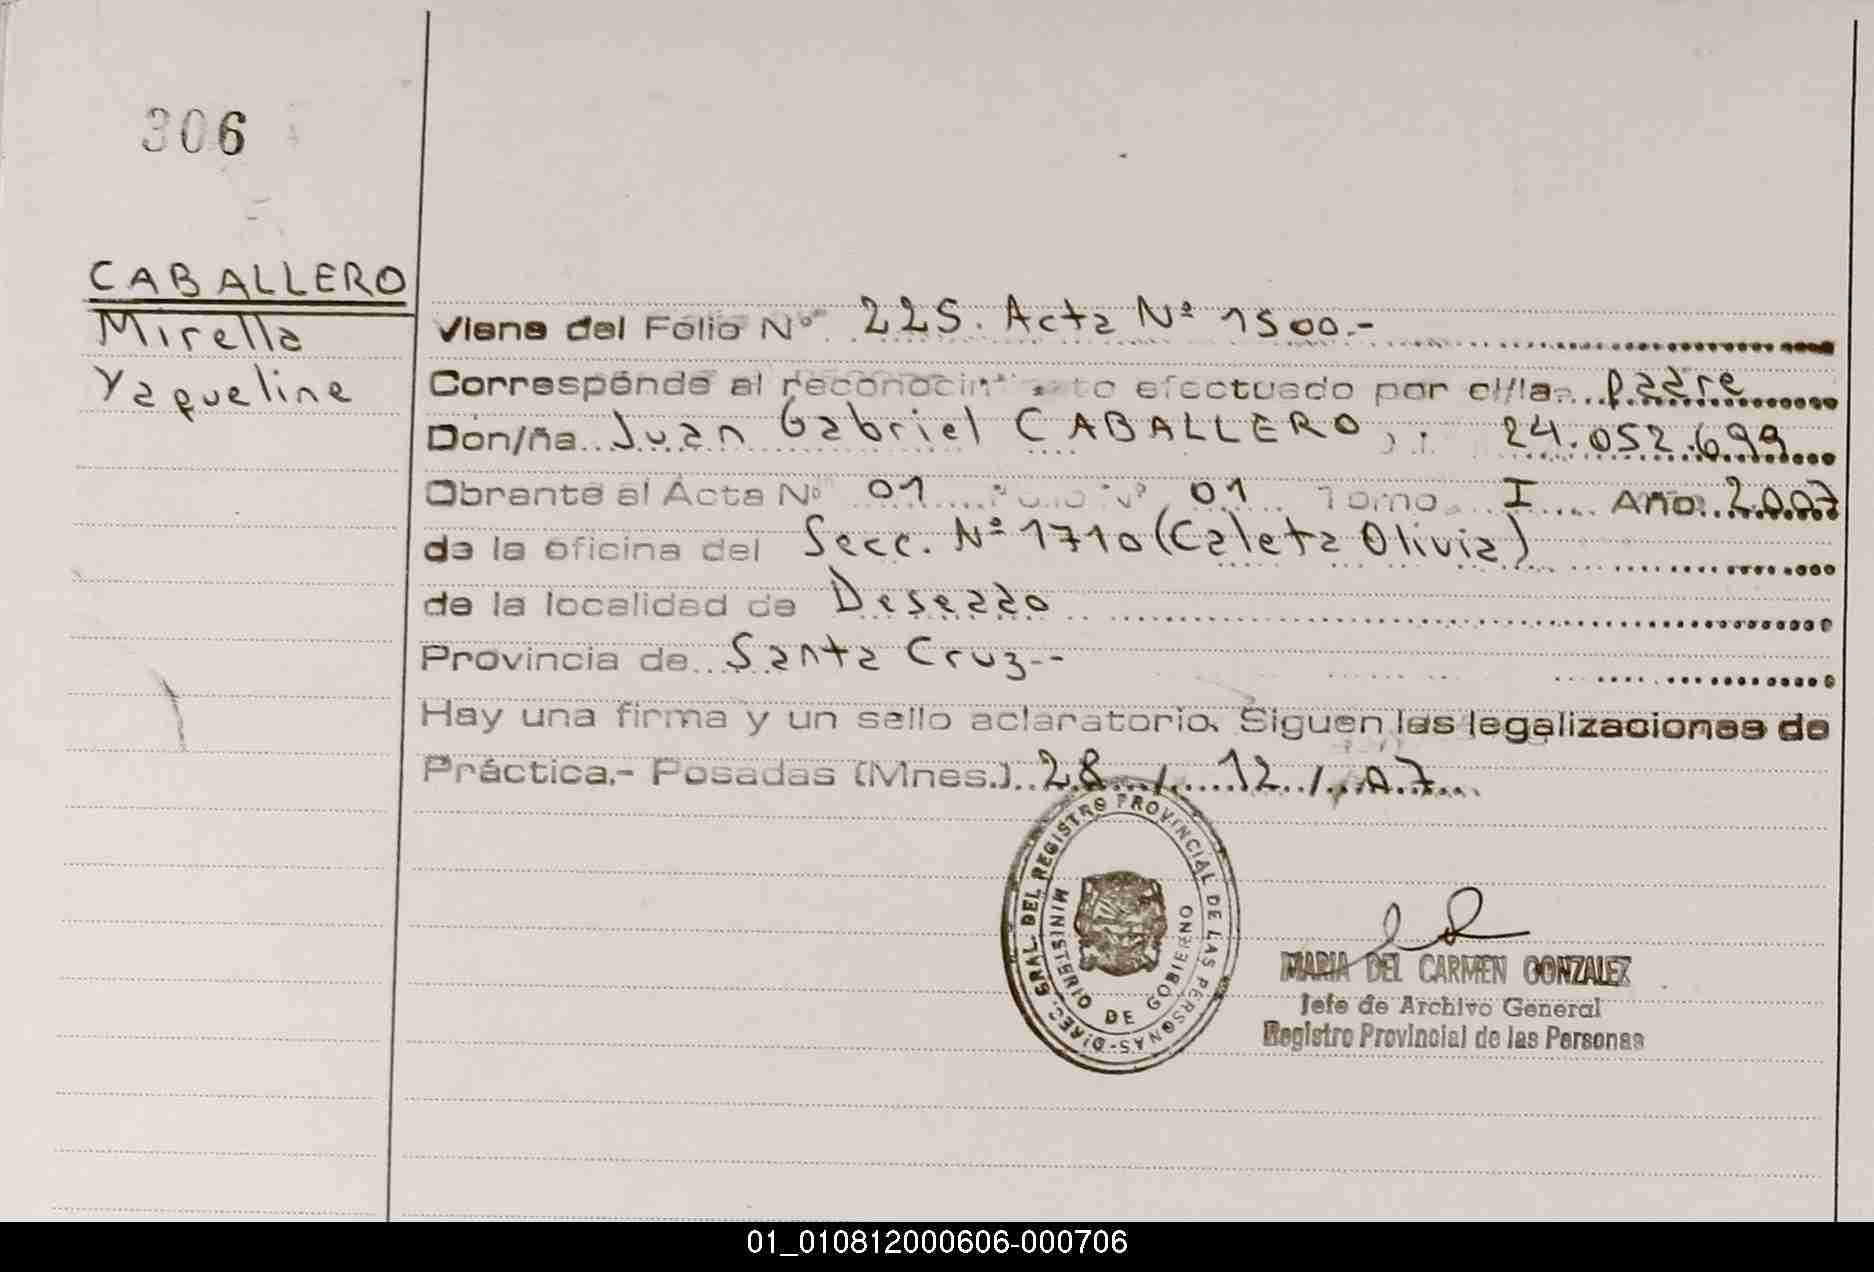 306
CABALLERO
Mirella
Yaqueline
Viene del Folio Nº 225. Acta Nº 1500.-
Corresponde al reconocimiento efectuado por el/la.. padre
Don/ña.. Juan Gabriel CABALLERO, 24.052.699
Obrante al Acta Nº 01 Folio Nº 01 Tomo I Año: 2.007
de la oficina del Secc. Nº 1710 (Caleta Olivia)
de la localidad de Deseado
Provincia de.. Santa Cruz--
Hay una firma y un sello aclaratorio. Siguen las legalizaciones de
Práctica.- Posadas (Mnes.).. 28 / 12 / 07
DIREC. GRAL. DEL REGISTRO PROVINCIAL DE LAS PERSONAS-
MINISTERIO DE GOBIERNO
MARIA DEL CARMEN GONZALEZ
Jefe de Archivo General
Registro Provincial de las Personas
01_010812000606-000706